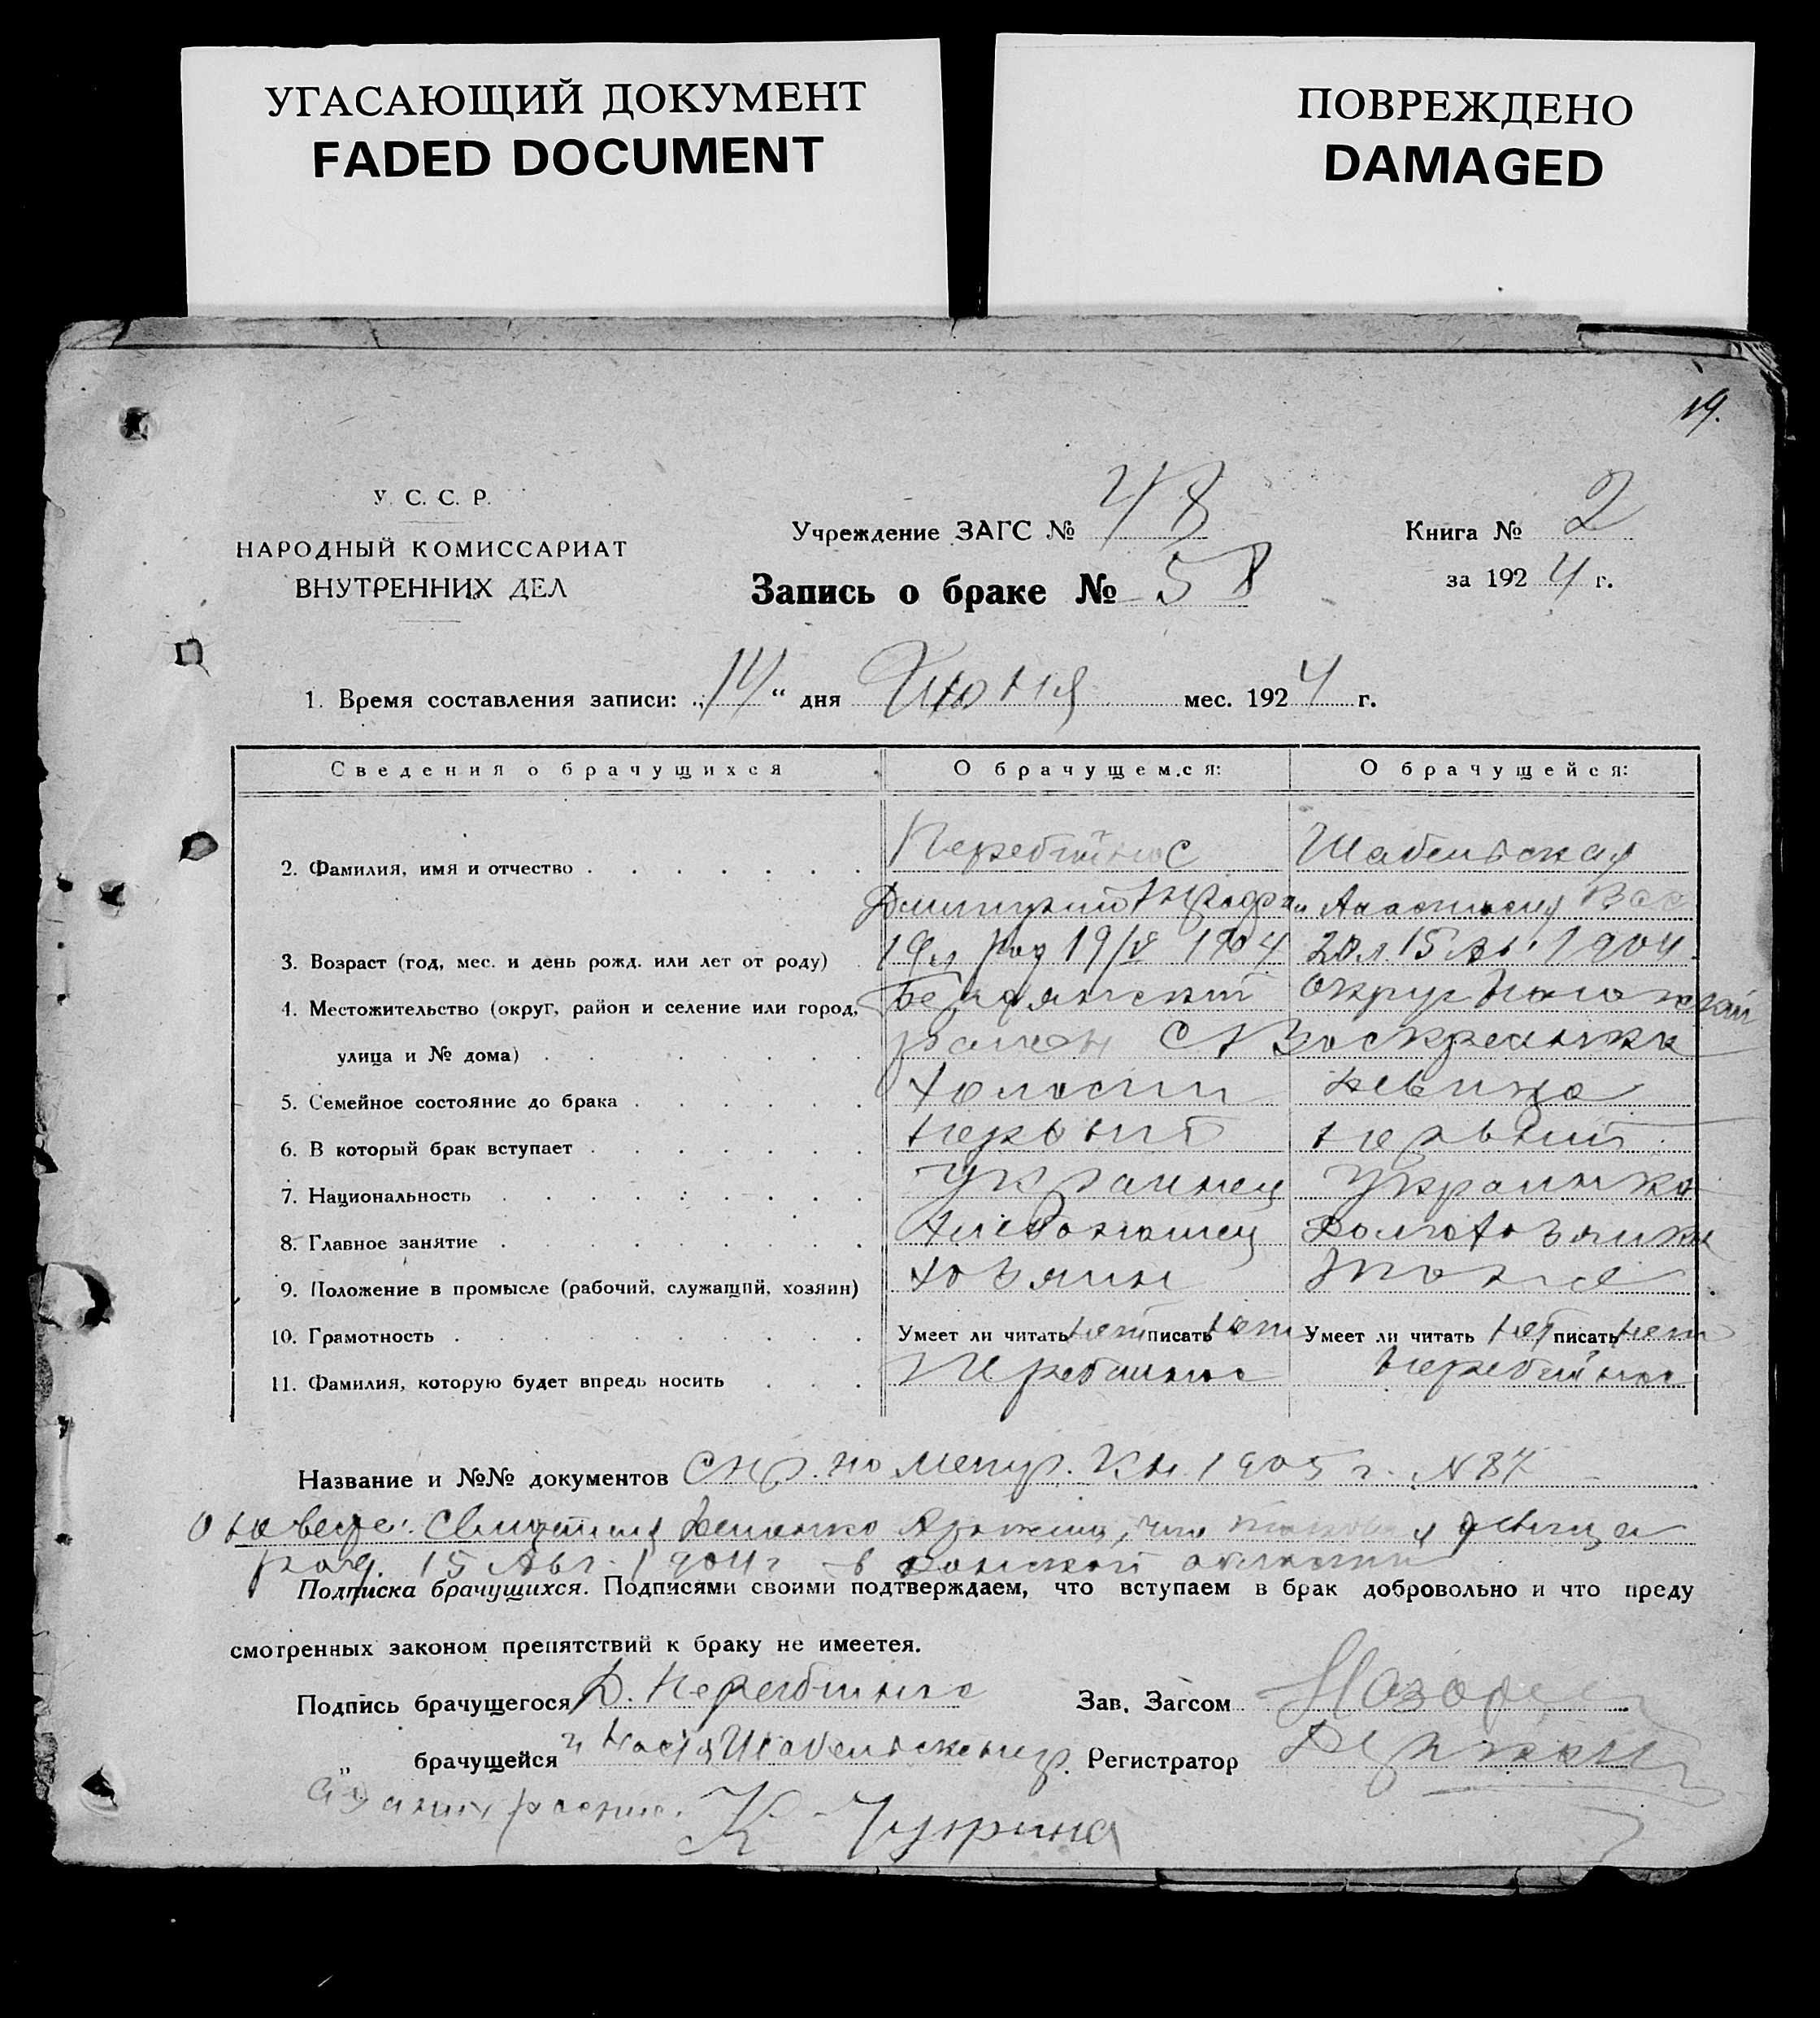 УГАСАЮЩИЙ ДОКУМЕНТ
FADED DOCUMENT
ПОВРЕЖДЕНО
DAMAGED
19.
У. С. С. Р.
НАРОДНЫЙ КОМИССАРИАТ
ВНУТРЕННИХ ДЕЛ
Учреждение ЗАГС № 48
Запись о браке № 58
Книга № 2
за 1924 г.
1. Время составления записи: „14“ дня Июня мес. 1924 г.
Сведения о брачущихся О брачущемся: О брачущейся:
2. Фамилия, имя и отчество Перебийнос Шабельская
Дмитрий Анастасия Вас
3. Возраст (год, мес. и день рожд. или лет от роду) 19 л род 19/IV 1904 20 л 15 Ав. 1904
4. Местожительство (округ, район и селение или город, Бердянский округ
улица и № дома) район С Воскресенка
5. Семейное состояние до брака холостий девица
6. В который брак вступает первый первый
7. Национальность Украинец Украинка
8. Главное занятие хлебопашец домохозяйка
9. Положение в промысле (рабочий, служащий, хозяин) хозяин
10. Грамотность Умеет ли читать нет писать нет Умеет ли читать нет писать нет
11. Фамилия, которую будет впредь носить Перебийнос Перебийнос
Название и №№ документов Кн. 1905 г. N 87
что девица
род. 15 Авг. 1904 г в Донской области
Подписка брачущихся. Подписями своими подтверждаем, что вступаем в брак добровольно и что преду
смотренных законом препятствий к браку не имеется.
Подпись брачущегося Д. Перебийнос Зав. Загсом
„ брачущейся Настя Регистратор
К Чуприна